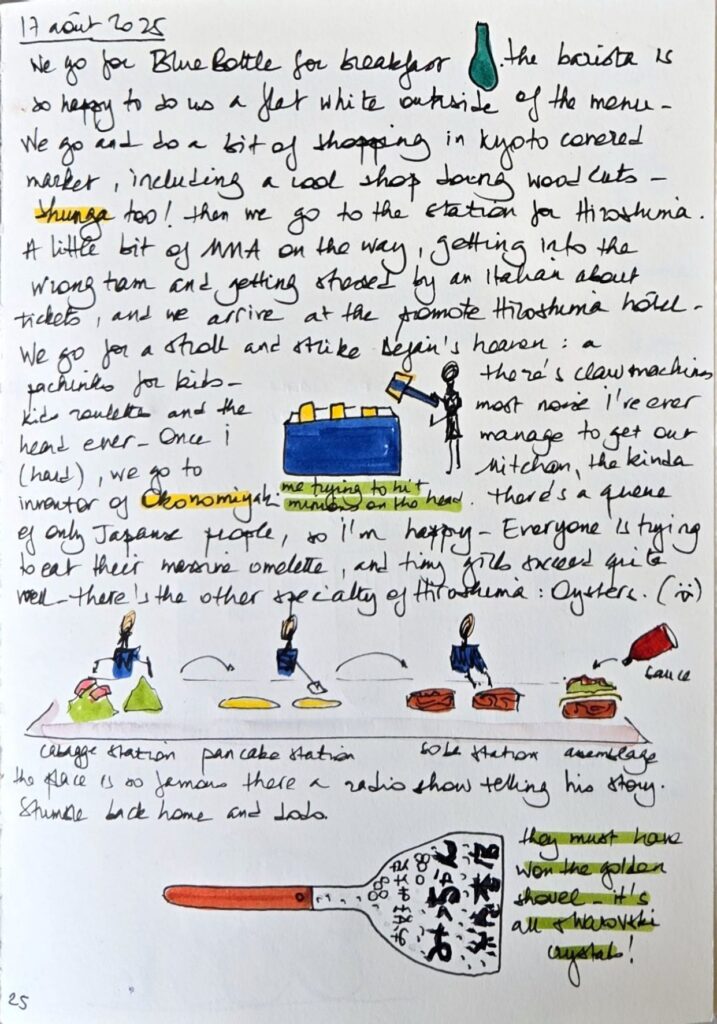 17 août 2025
We go for Blue Bottle for breakfast. the barista is
so happy to do us a flat white outside of the menu -
We go and do a bit of shopping in Kyoto covered
market, including a cool shop doing woodcuts -
shunga too! then we go to the station for Hiroshima.
A little bit of MMA on the way, getting into the
wrong tram and getting stressed by an Italian about
tickets, and we arrive at the Hiroshima hôtel -
We go for a stroll and strike Dejan's heaven: a
pachinko for kids -
kids roulette and the
head ever - Once i
(hard), we go to
inventor of Okonomiyaki.
there's claw machines
most noise i've ever
manage to get out
Mitchan, the kinda
there's a queue
me trying to hit
minions on the head.
of only Japanese people, so i'm happy - Everyone is trying
to eat their massive omelette, and tiny girls succeed quite
well - there's the other specialty of Hiroshima: Oysters.
sauce
cabagge station pancake station soba station assemblage
the place is so famous there a radio show telling his story.
Stumble back home and dodo.
they must have
won the golden
shovel - it's
all swarovski
crystals!
25